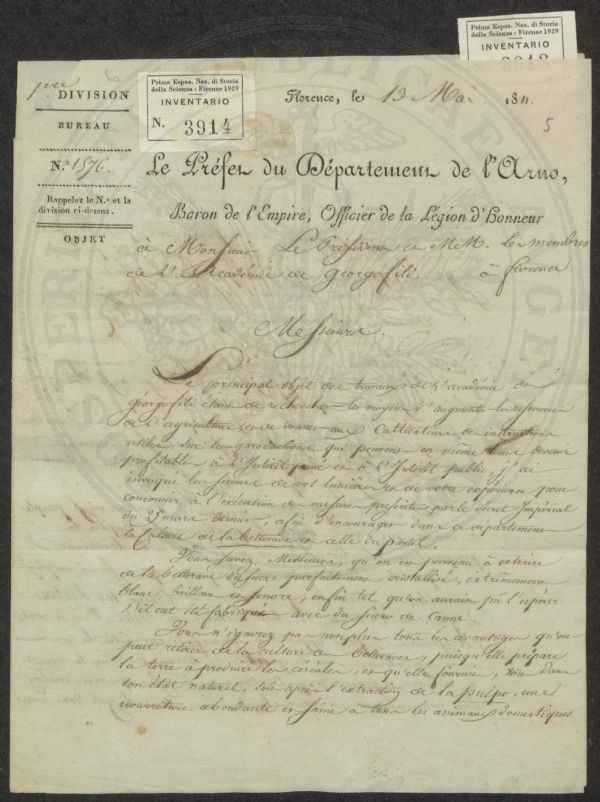 Prima Espos. Naz. di Storia
della Scienza - Firenze 1929
INVENTARIO
Prima Espos. Naz. di Storia
della Scienza - Firenze 1929
INVENTARIO
N. 3914
1ère DIVISION
BUREAU
N.º 1576.
Rappelez le N.º et la
division ci-dessus.
OBJET
Florence, le 13 Mai 1811.
5
Le Préfet du Département de l'Arno,
Baron de l'Empire, Officier de la Légion d'Honneur
à Monsieur Le Président et MM. les membres
de L'Académie de Georgofili à florence
Messieurs.
Le principal objet des travaux de L'académie des
géorgofili étant de rechercher les moyens d'augmenter les ressources
de L'agriculture et de donner aux Cultivateurs des instructions
utiles sur les productions qui peuvent en même tems devenir
profitables à L'Intérêt privé et à L'Intérêt public j'ai
invoqué les secours de vos lumières et de votre expérience pour
concourir à l'exécution des mesures prescrites par le décret Impérial
du 25 mars dernier, afin d'encourager dans ce département
la Culture de la betterave et celle du pastel.
Vous savez, Messieurs, qu'on est parvenu à extraire
de la betterave du sucre parfaitement cristallisé, extrêmement
blanc, brillant et sonore, enfin tel qu'on aurait pu l'espérer
s'il eut été fabriqué avec du sucre de Canne.
Vous n'ignorez pas non plus tous les avantages qu'on
peut retirer de la culture des betteraves, puisqu'elle prépare
la terre à produire les céréales, et qu'elle fournit, soit dans
son état naturel, soit après l'extraction de la pulpe, une
nourriture abondante et saine à tous les animaux domestiques